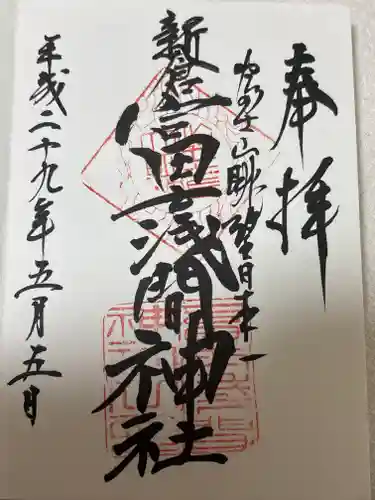 奉拝
富士山眺望日本一
新倉富士浅間神社
平成二十九年五月五日